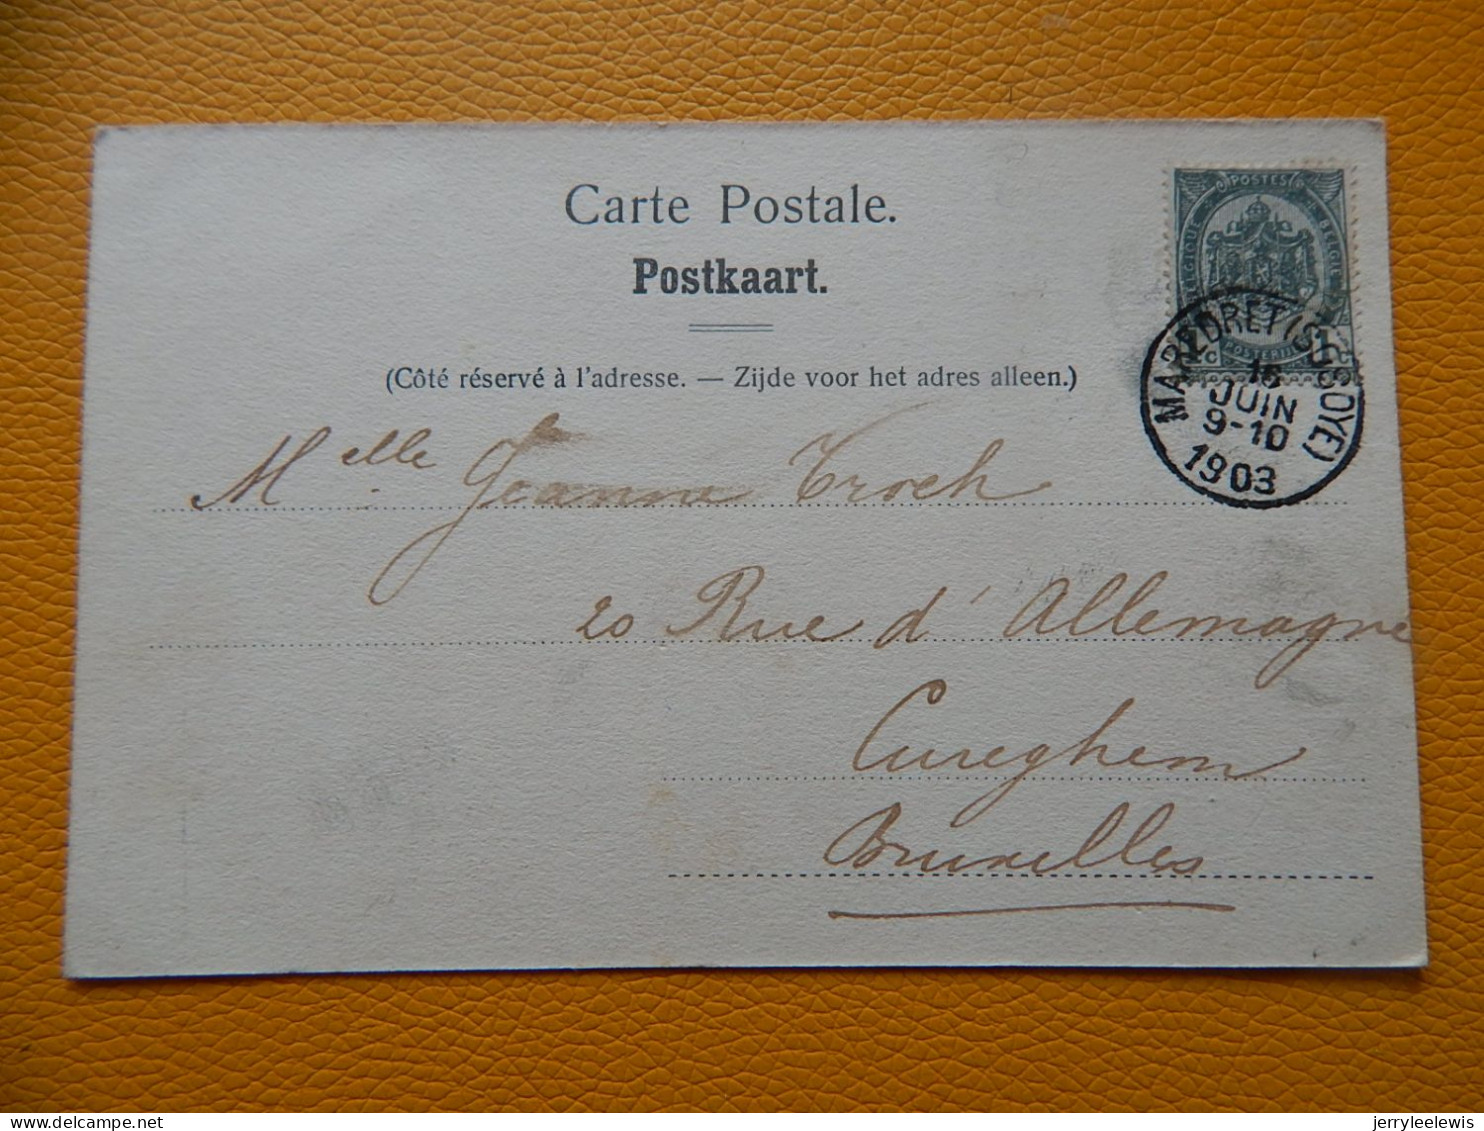 Carte Postale.
Postkaart.
(Côté réservé à l'adresse. — Zijde voor het adres alleen.)
POSTES
BELGIQUE BELGIË
1 C 1 C
POSTERIJEN
MAREDRET (SOSOYE)
16
JUIN
9-10
1903
Melle Jeanne Troch
20 Rue d'Allemagne
Cureghem
Bruxelles
jerryleelewis